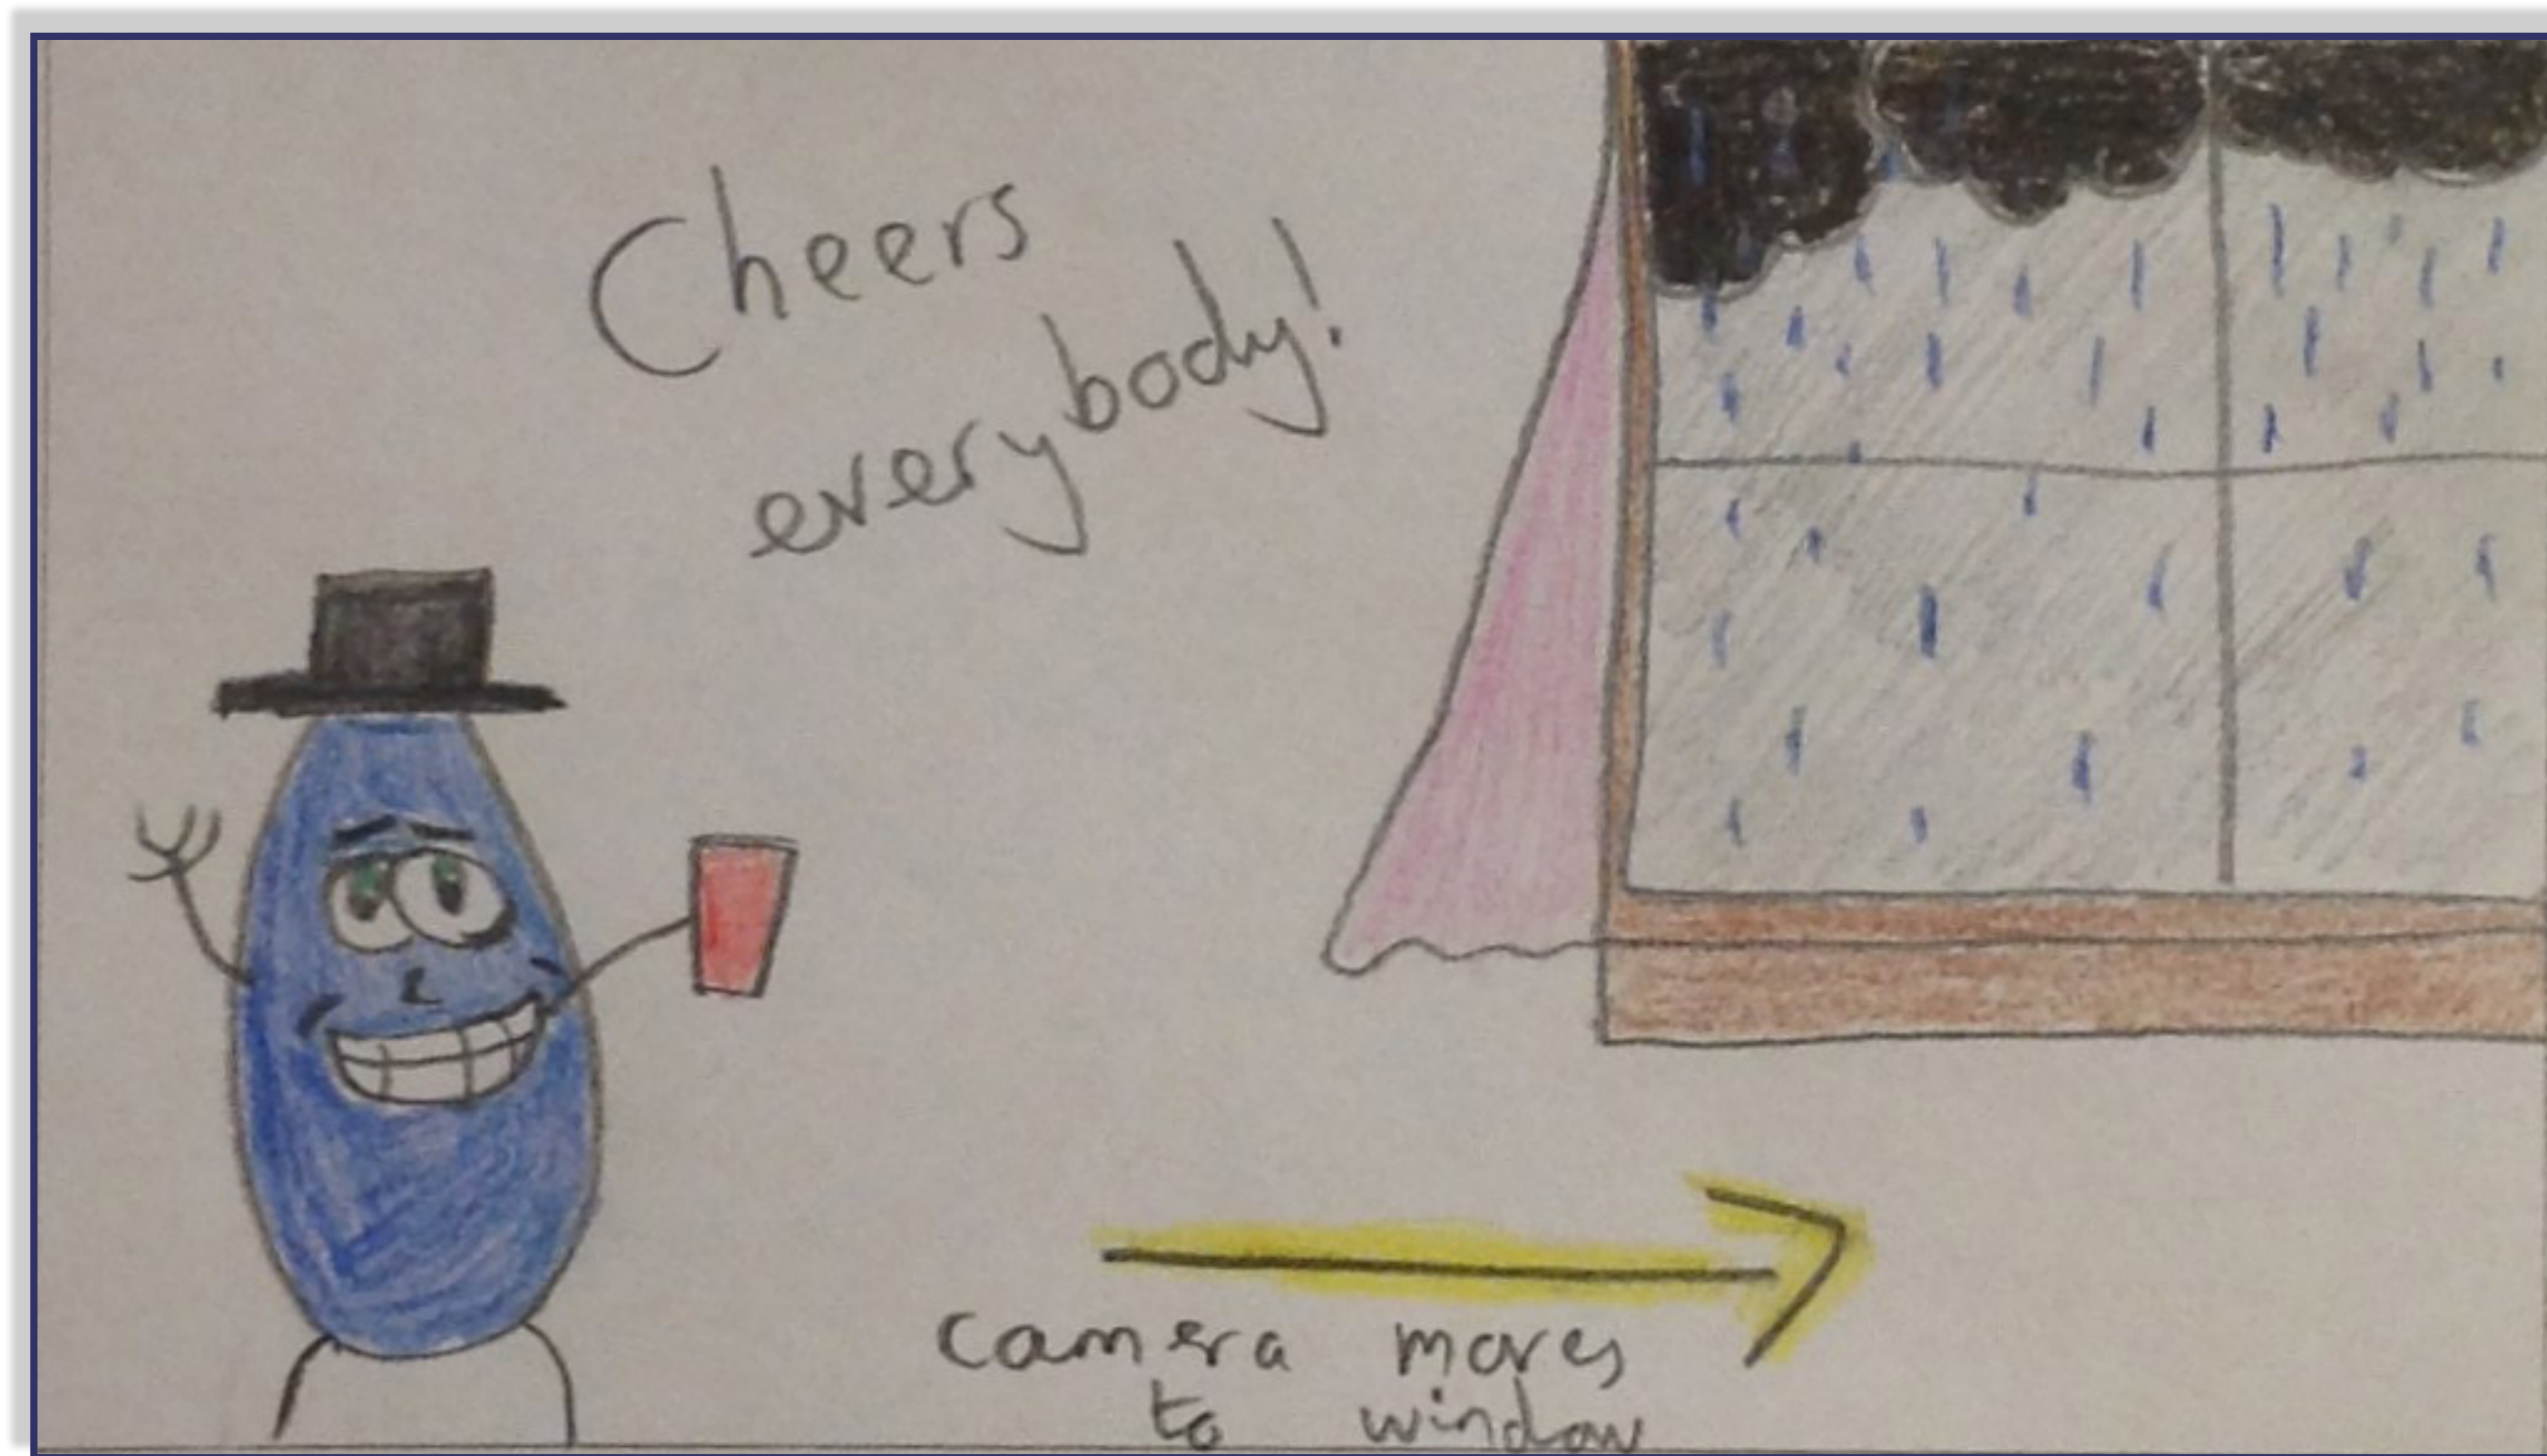 Cheers
everybody!
camera moves
to window